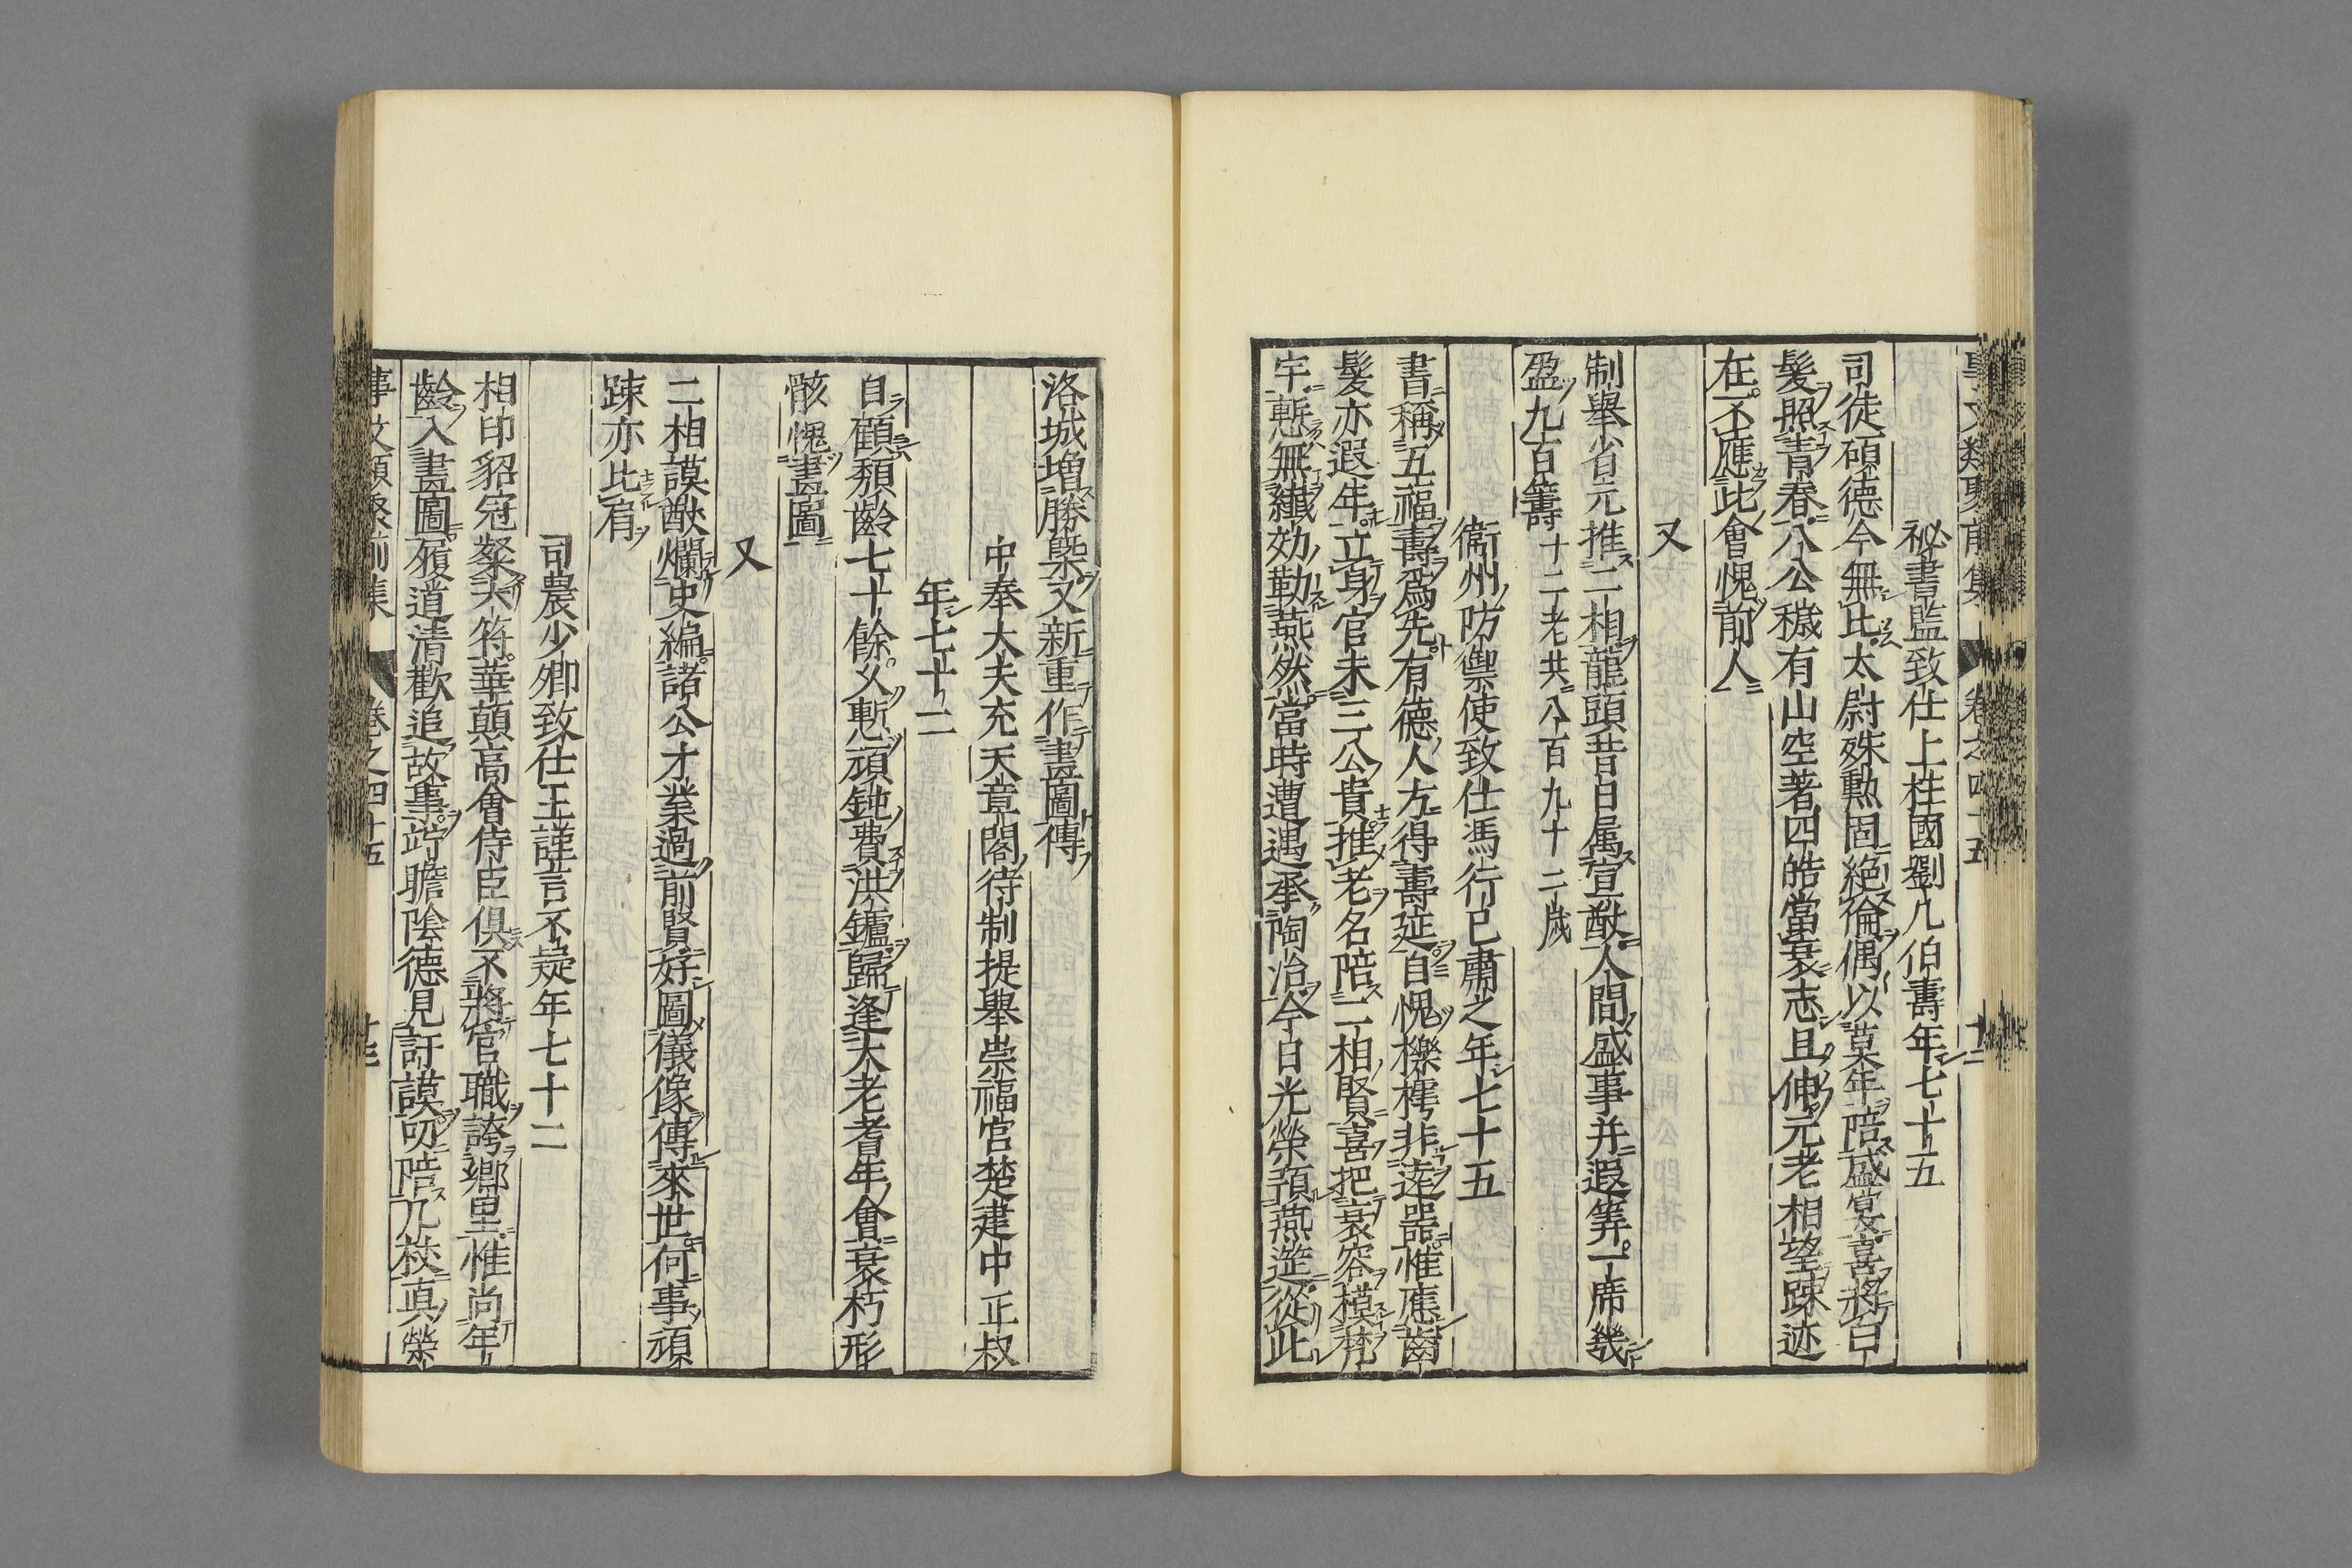 事文類聚前集 卷之四十五 十二
秘書監致仕上柱國劉几伯壽年七十五
司徒碩德今無比太尉殊勲固絶倫偶以莫年陪盛宴喜將白
髮照青春八公穢有山空著四皓當衰志且伸元老相望踈迹
在不應此會愧前人
又
制舉省元推二相龍頭昔日属宣猷人間盛事并遐筭一席幾
盈九百籌十二老共八百九十二歲
衞州防禦使致仕馮行已肅之年七十五
書稱五福壽爲先有德人方得壽延自愧櫟樗非逵器惟應齒
髮亦遐年立身官未三公貴推老名陪二相賢喜把衰容模梵
宇慙無纎効勒燕然當時遭遇承陶冶今日光榮預燕遊從此
洛城增勝槩又新重作畫圖傳
中奉大夫充天章閣待制提舉崇福宮楚建中正叔
年七十二
自顧頽齡七十餘乂慙頑鈍費洪鑪歸逢大老耆年會衰朽形
骸愧畫圖
又
二相謨猷爛史編諸公才業過前賢好圖儀像傳來世何事頑
踈亦比肩
司農少卿致仕王謹言不疑年七十二
相印貂冠粲夫符華顛高會侍臣俱不將官職誇鄉里惟尚年
齡入畫圖履道清歡追故事竚瞻隂德見訏謨叨陪几杖真榮
事文類聚前集 卷之四十五 十三